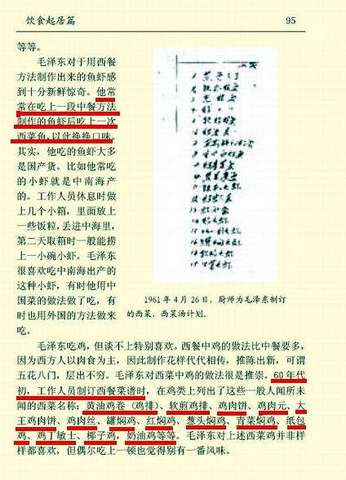 饮食起居篇 95
等等。
毛泽东对于用西餐
方法制作出来的鱼虾感
到十分新鲜惊奇。他常
常在吃上一段中餐方法
制作的鱼虾后吃上一次
西菜鱼,以此换换口味。
其实,他吃的鱼虾大多
是国产货。比如他常吃
的小虾就是中南海产
的。工作人员休息时做
上几个小箱,里面放上
一些饭粒,丢进中海里,
第二天取箱时一般能捞
上一小碗小虾。毛泽东
很喜欢吃中南海出产的
这种小虾,有时他用中
国菜的做法做了吃,有
时也用外国的方法做来
吃。
1961年4月26日,厨师为毛泽东制订
的西菜、西菜汤计划。
毛泽东吃鸡,但谈不上特别喜欢。西餐中鸡的做法比中餐要多,
因为西方人以肉食为主,因此制作花样代代相传,推陈出新,可谓
五花八门,层出不穷。毛泽东对西菜中鸡的做法很是推崇。60年代
初,工作人员制订西餐菜谱时,在鸡类上列出了这些一般人闻所未
闻的西菜名称:黄油鸡卷(鸡排)、软煎鸡排、鸡肉饼、鸡肉元、大
王鸡肉饼、鸡肉丝、罐焖鸡、红焖鸡、葱头焖鸡、青菜焖鸡、纸包
鸡、鸡丁敏士、椰子鸡、奶油鸡等等。毛泽东对上述西菜鸡并非样
样都喜欢,但偶尔吃上一顿也觉得别有一番风味。